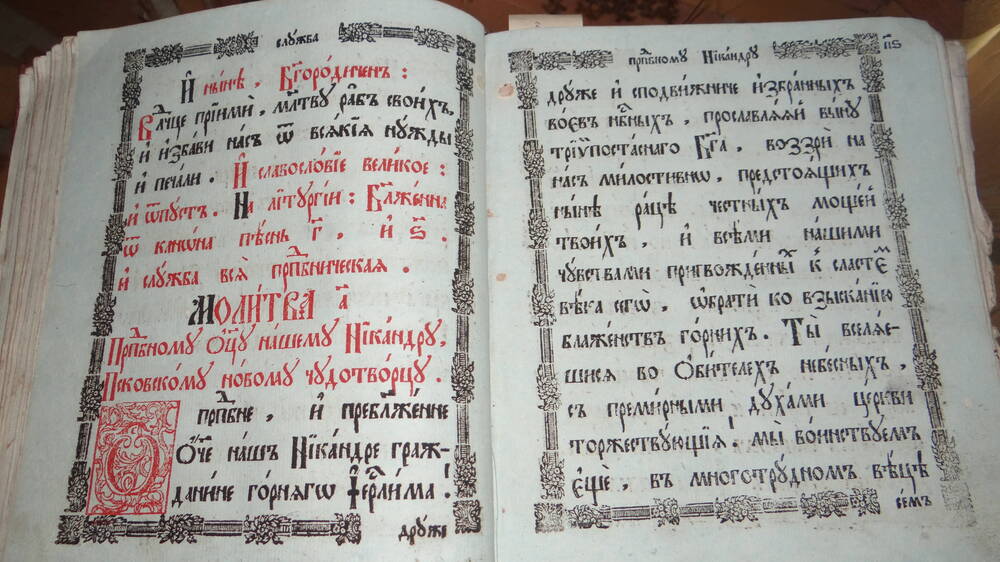 слꙋжба
И҆ ны́нѣ, Бг҃оро́диченъ:
Влⷣчце прїими, мл҃твꙋ ра̑бъ свои́хъ,
и҆ и҆зба́ви на́съ ѿ всѧ́кїѧ нꙋ́жды
и҆ печа́ли. И҆ славосло́вїе вели́кое:
и҆ ѿпꙋ́стъ. На лїтꙋргі́и: Бл҃же́нна
ѿ канѡ́на пѣ́снь г҃, и҆ ѕ҃.
и҆ слꙋ́жба всѧ̀ прпⷣбническаѧ.
Моли́тва а҃
Прпⷣбномꙋ Ѻ҆ц҃ꙋ̀ на́шемꙋ Нїка́ндрꙋ,
Пско́вскомꙋ но́вомꙋ чꙋдотво́рцꙋ.
Ѽ прпⷣбне, и҆ пребл҃же́нне
Ѻ҆́ч҃е на́шъ Нїка́ндре граж-
дани́не го́рнѧгѡ І҆ер҃ли́ма!
дрꙋже
прпⷣбномꙋ Нїка́ндрꙋ
пѕ
дрꙋ́же и҆ сподви́жниче и҆збра́нныхъ
во́євъ нбⷭ҇ныхъ, прославлѧ́ѧй вы́нꙋ
трїѵпоста́снаго Бг҃а, воззрѝ на
на́съ ми́лостивнѡ, предстоѧ́щихъ
ны́нѣ ра́цѣ че́стныхъ моще́й
твои́хъ, и҆ все́ми на́шими
чꙋ́вствами пригвожде́нныѧ к сласте́
вѣ́ка сегѡ̀, ѡ҆брати́ ко взыска́нїю
блаже́нствъ го́рнихъ. Ты̀ вселѧ́е-
шисѧ во Ѻ҆би́телехъ небе́сныхъ,
съ преми́рными дꙋ́хами це́ркви
торжествꙋ́ющїѧ! мы̀ во́инствꙋемъ
є҆щѐ, въ многотрꙋ́дномъ вѣ́цѣ
семъ